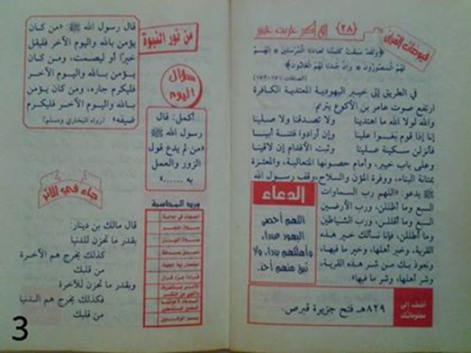 الله أكبر خربت خيبر
(٢٨)
﴿ولقد سبقت كلمتنا لعبادنا المرسلين * إنهم
لهم المنصورون * وإن جندنا لهم الغالبون﴾
في الطريق إلى خيبر اليهودية المعتدية الكافرة
ارتفع صوت عامر بن الأكوع يترنم:
والله لولا الله ما اهتدينا ولا تصدقنا ولا صلينا
إنا إذا قوم بغوا علينا وإن أرادوا فتنة أبينا
فأنزلن سكينة علينا وثبت الأقدام إن لاقينا
وعلى باب خيبر، وأمام حصونها المتعالية، والمعتزة
بمتانة البناء، ووفرة المؤن والسلاح، وقف رسول الله
ﷺ يدعو: «اللهم رب السماوات
السبع وما أظللن، ورب الأرضين
السبع وما أقللن، ورب الشياطين
وما أضللن، فإنا نسألك خير هذه
القرية، وخير أهلها، وخير ما فيها،
ونعوذ بك من شر هذه القرية،
وشر أهلها، وشر ما فيها»
الدعاء
اللهم أحصِ
اليهود عددا،
وأهلكهم بددا، ولا
تبق منهم أحد.
أضف إلى
معلوماتك
٨٢٩هـ فتح جزيرة قبرص.
من نور النبوة
قال رسول الله ﷺ: «من كان
يؤمن بالله واليوم الآخر فليقل
خيرًا أو ليصمت، ومن كان
يؤمن بالله واليوم الآخر
فليكرم جاره، ومن كان يؤمن
بالله واليوم الآخر فليكرم
ضيفه» (رواه البخاري ومسلم)
سؤال
اليوم
أكمل: قال
رسول الله ﷺ:
«من لم يدع قول
الزور والعمل
به ......»
جاء في الأثر
قال مالك بن دينار:
بقدر ما تحزن للدنيا
كذلك يخرج هم الآخرة
من قلبك
وبقدر ما تحزن للآخرة
فكذلك يخرج هم الدنيا
من قلبك
ورد المحاسبة
3